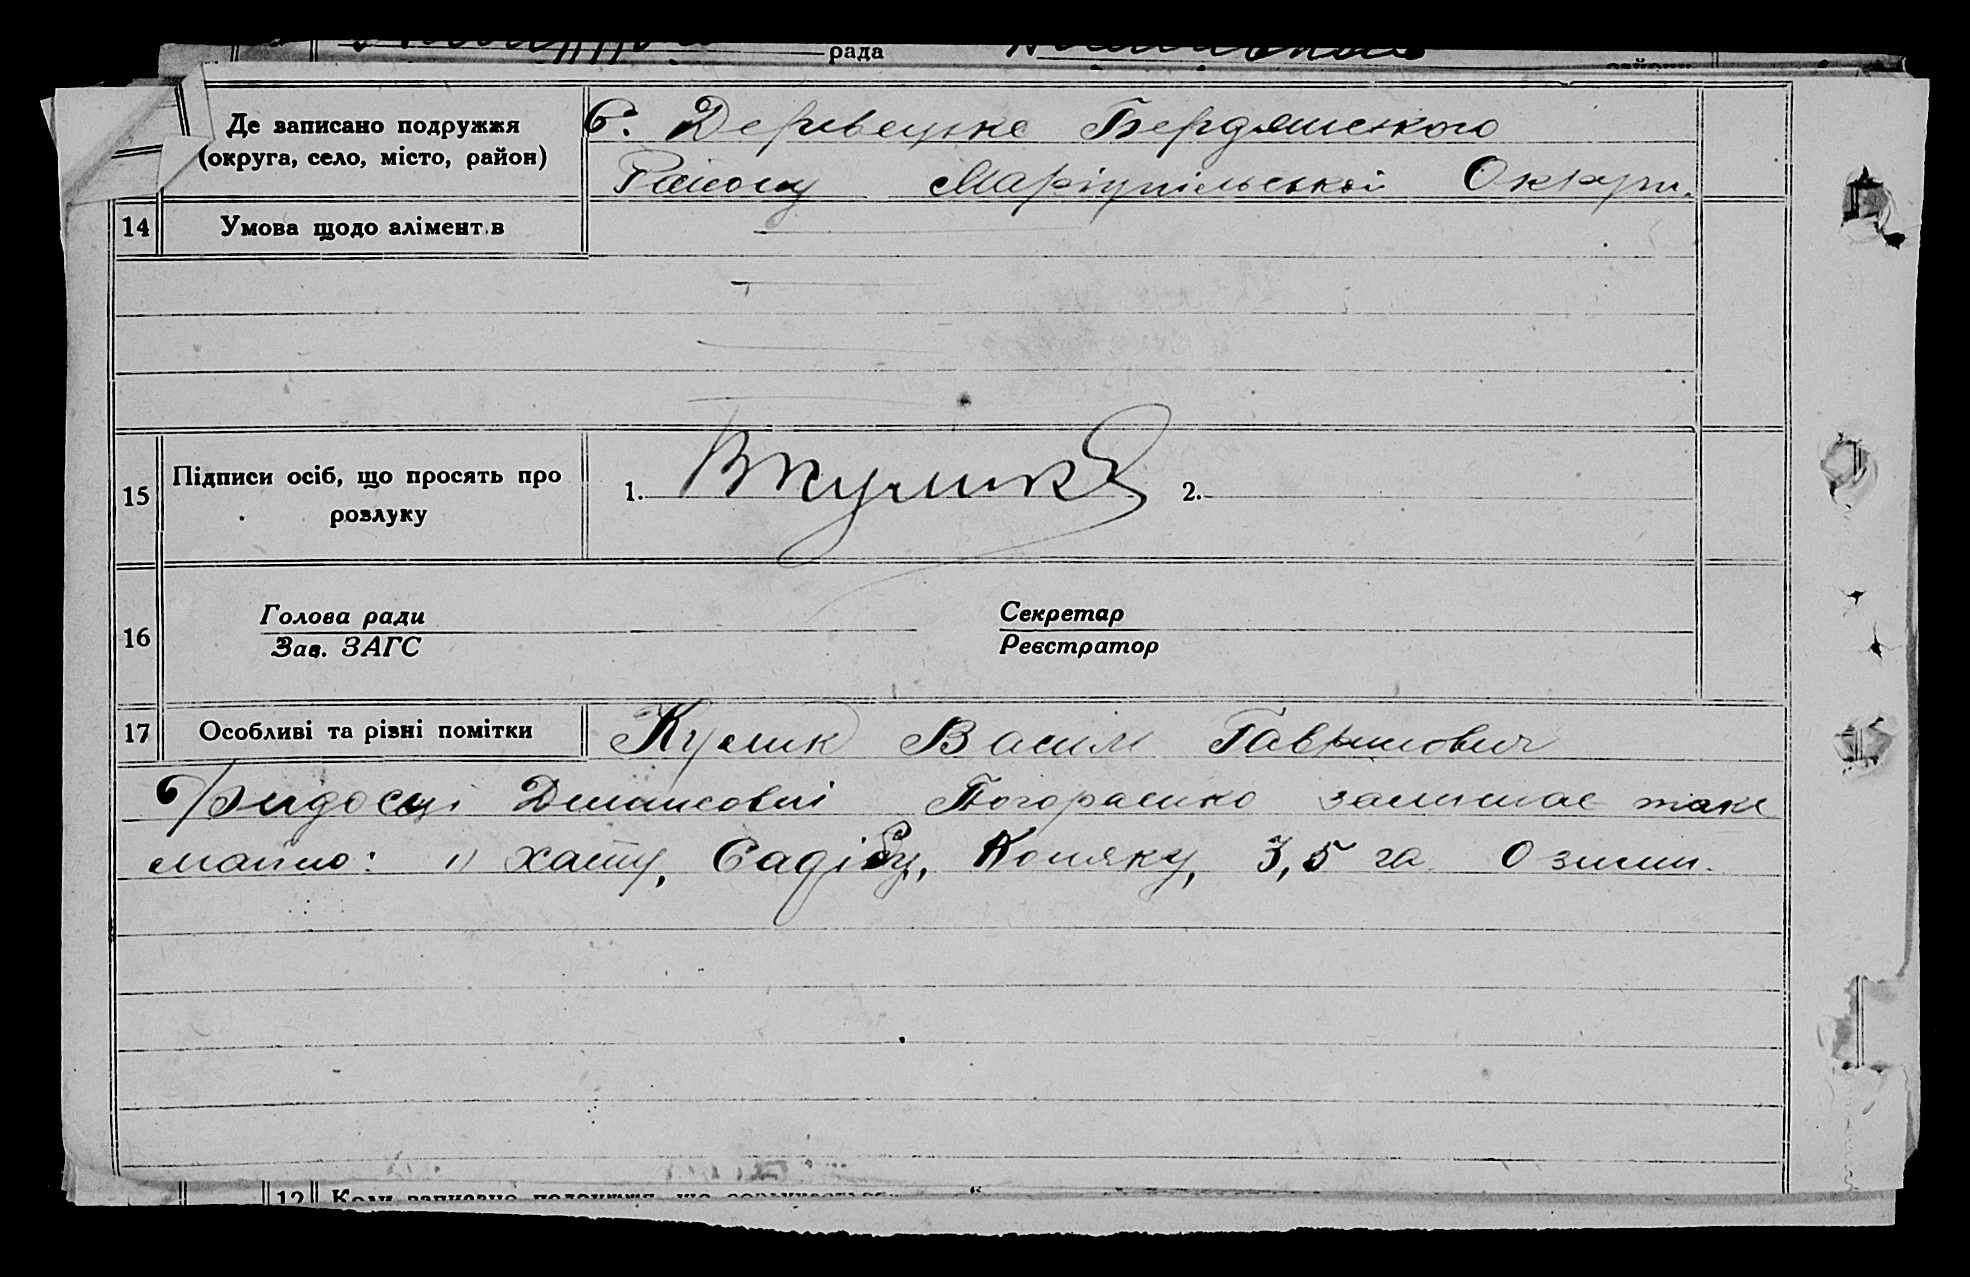 рада
Де записано подружжя
(округа, село, місто, район)
С. Деревецьке Бердянського
Району Маріупільської Окрузи.
14 Умова щодо алімент.в
15 Підписи осіб, що просять про
розлуку
1. В Кулик 2.
16 Голова ради Секретар
Зав. ЗАГС Реєстратор
17 Особливі та різні помітки Кулик Василь Гаврилович
залишає таке
майно: 1) хату, Садібу, Коняку, 3,5 га Озими.
12 Коли записано подружжя, що